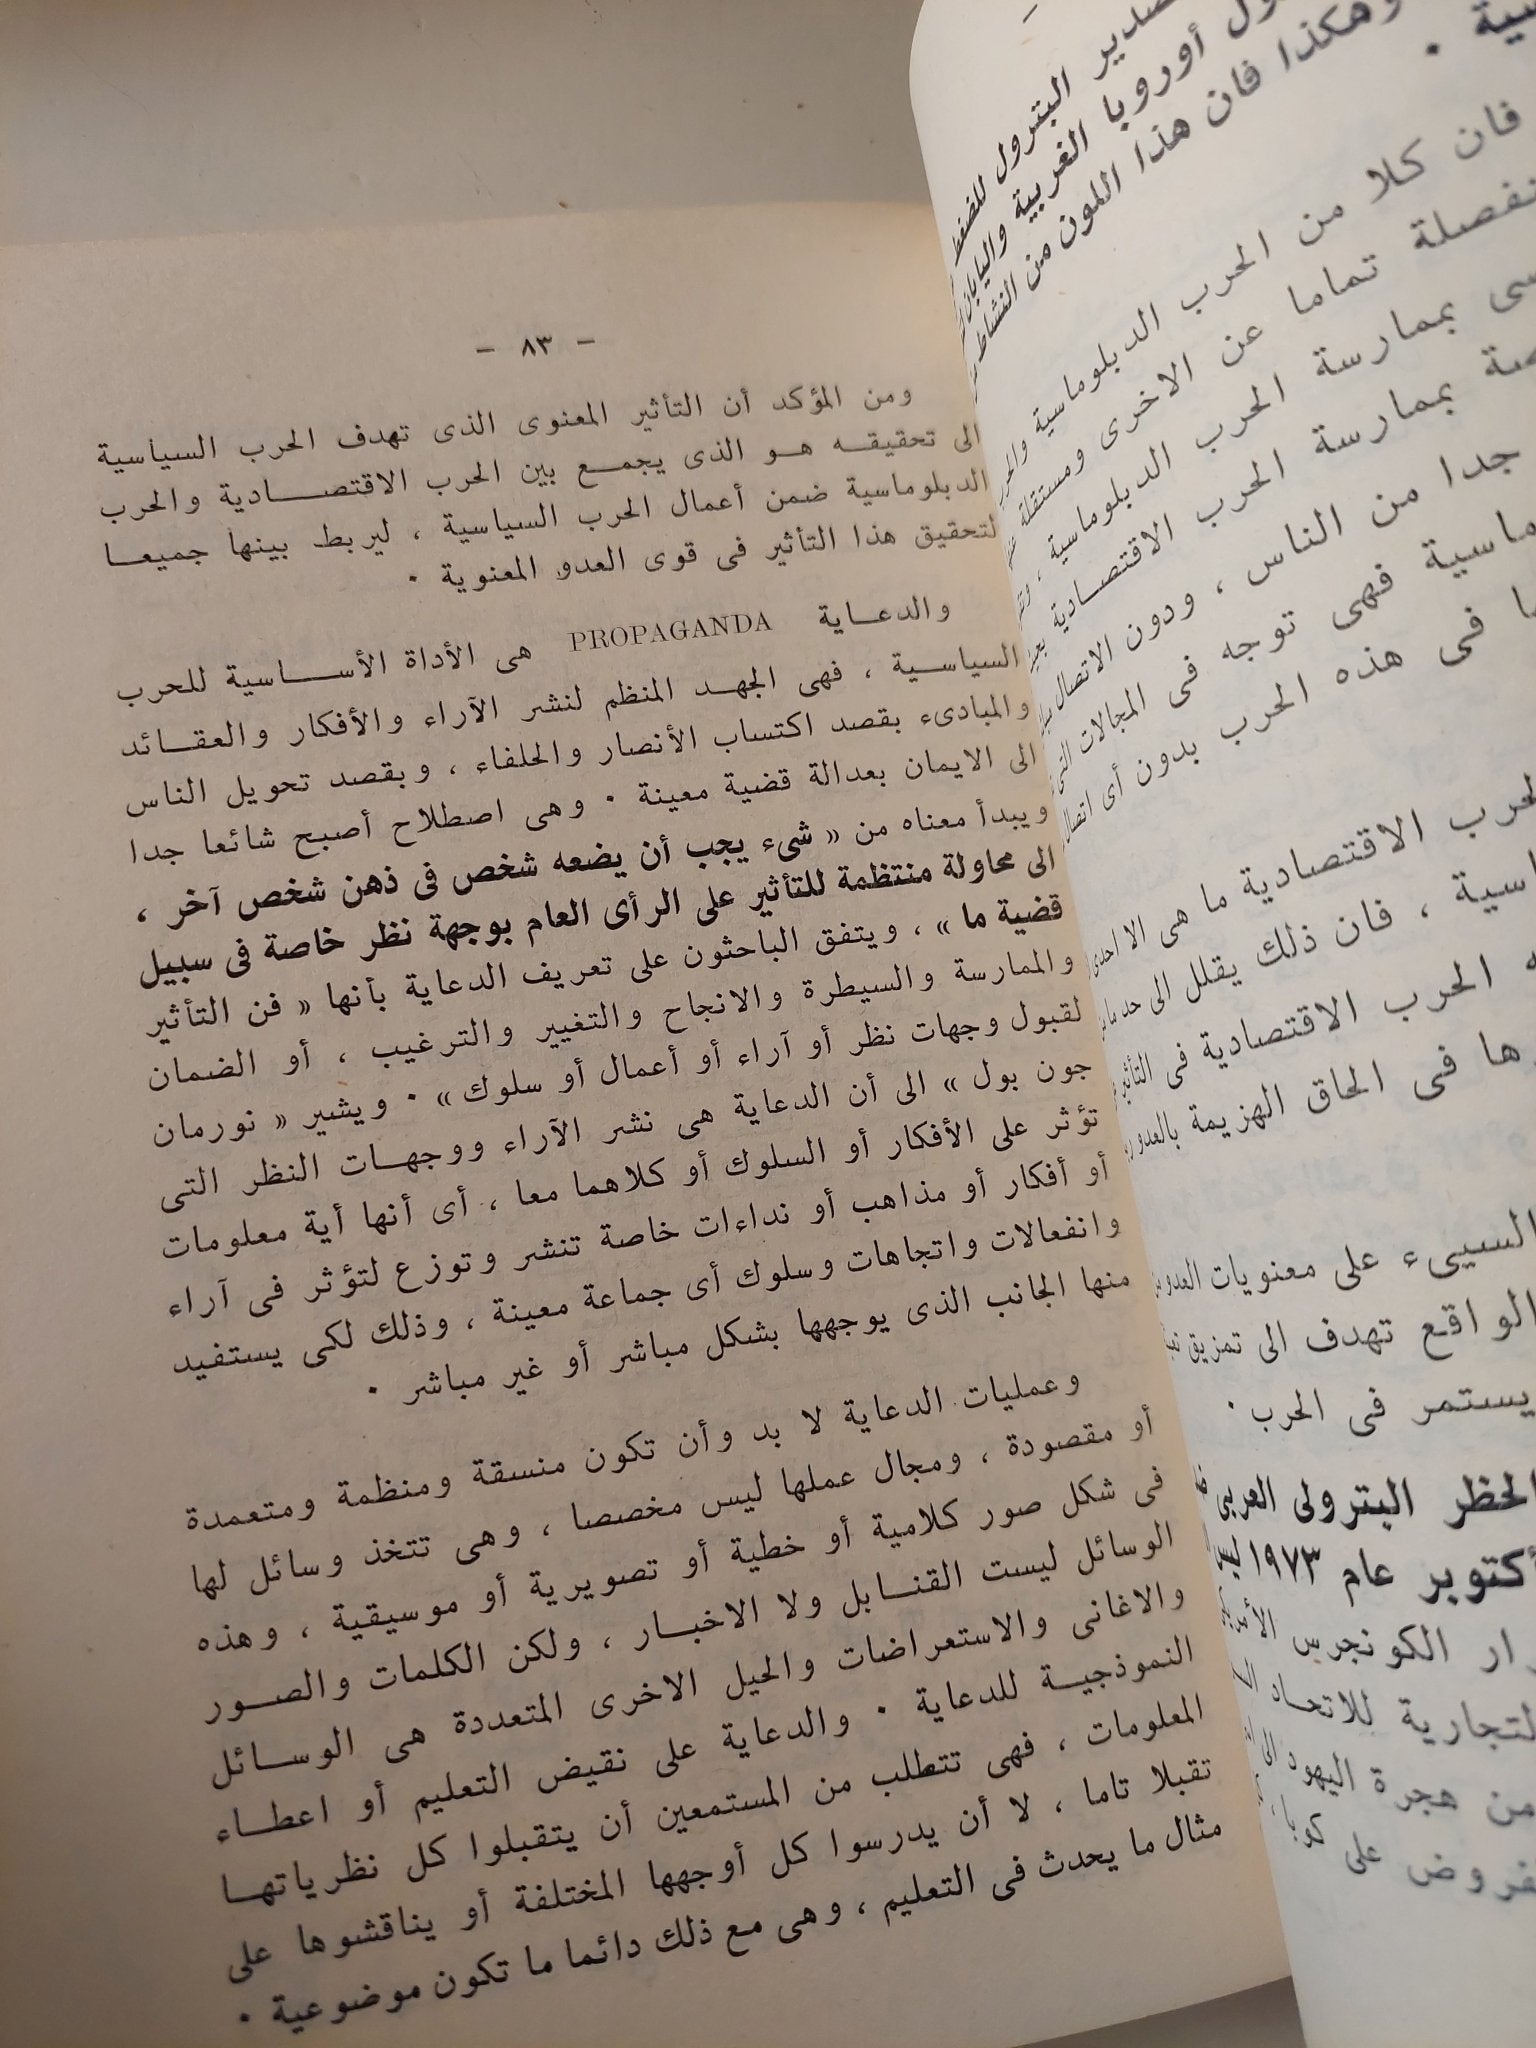 تصدير البترول للضغط
أوروبا الغربية واليابان
وهكذا فان هذا اللون من النشاط
فان كلا من الحرب الدبلوماسية
تماما عن الاخرى ومستقلة
بممارسة الحرب الدبلوماسية ،
بممارسة الحرب الاقتصادية
جدا من الناس ، ودون الاتصال
فهى توجه فى المجالات
فى هذه الحرب بدون أى اتصال
الحرب الاقتصادية ما هى الا احدى
، فان ذلك يقلل الى حد ما
الحرب الاقتصادية فى التأثير
فى الحاق الهزيمة بالعدو
السيىء على معنويات العدو
الواقع تهدف الى تمزيق
يستمر فى الحرب .
الحظر البترولى العربى
أكتوبر عام ١٩٧٣ ليس
الكونجرس
التجارية للاتحاد
من هجرة اليهود الى
على كوبا
– ٨٣ –
ومن المؤكد أن التأثير المعنوى الذى تهدف الحرب السياسية
الى تحقيقه هو الذى يجمع بين الحرب الاقتصادية والحرب
الدبلوماسية ضمن أعمال الحرب السياسية ، ليربط بينها جميعا
لتحقيق هذا التأثير فى قوى العدو المعنوية .
والدعاية PROPAGANDA هى الأداة الأساسية للحرب
السياسية ، فهى الجهد المنظم لنشر الآراء والأفكار والعقائد
والمبادىء بقصد اكتساب الأنصار والحلفاء ، وبقصد تحويل الناس
الى الايمان بعدالة قضية معينة . وهى اصطلاح أصبح شائعا جدا
ويبدأ معناه من « شىء يجب أن يضعه شخص فى ذهن شخص آخر ،
الى محاولة منتظمة للتأثير على الرأى العام بوجهة نظر خاصة فى سبيل
قضية ما » ، ويتفق الباحثون على تعريف الدعاية بأنها « فن التأثير
والممارسة والسيطرة والانجاح والتغيير والترغيب ، أو الضمان
لقبول وجهات نظر أو آراء أو أعمال أو سلوك » . ويشير « نورمان
جون بول » الى أن الدعاية هى نشر الآراء ووجهات النظر التى
تؤثر على الأفكار أو السلوك أو كلاهما معا ، أى أنها أية معلومات
أو أفكار أو مذاهب أو نداءات خاصة تنشر وتوزع لتؤثر فى آراء
وانفعالات واتجاهات وسلوك أى جماعة معينة ، وذلك لكى يستفيد
منها الجانب الذى يوجهها بشكل مباشر أو غير مباشر .
وعمليات الدعاية لا بد وأن تكون منسقة ومنظمة ومتعمدة
أو مقصودة ، ومجال عملها ليس مخصصا ، وهى تتخذ وسائل لها
فى شكل صور كلامية أو خطية أو تصويرية أو موسيقية ، وهذه
الوسائل ليست القنابل ولا الاخبار ، ولكن الكلمات والصور
والاغانى والاستعراضات والحيل الاخرى المتعددة هى الوسائل
النموذجية للدعاية . والدعاية على نقيض التعليم أو اعطاء
المعلومات ، فهى تتطلب من المستمعين أن يتقبلوا كل نظرياتها
تقبلا تاما ، لا أن يدرسوا كل أوجهها المختلفة أو يناقشوها على
مثال ما يحدث فى التعليم ، وهى مع ذلك دائما ما تكون موضوعية .